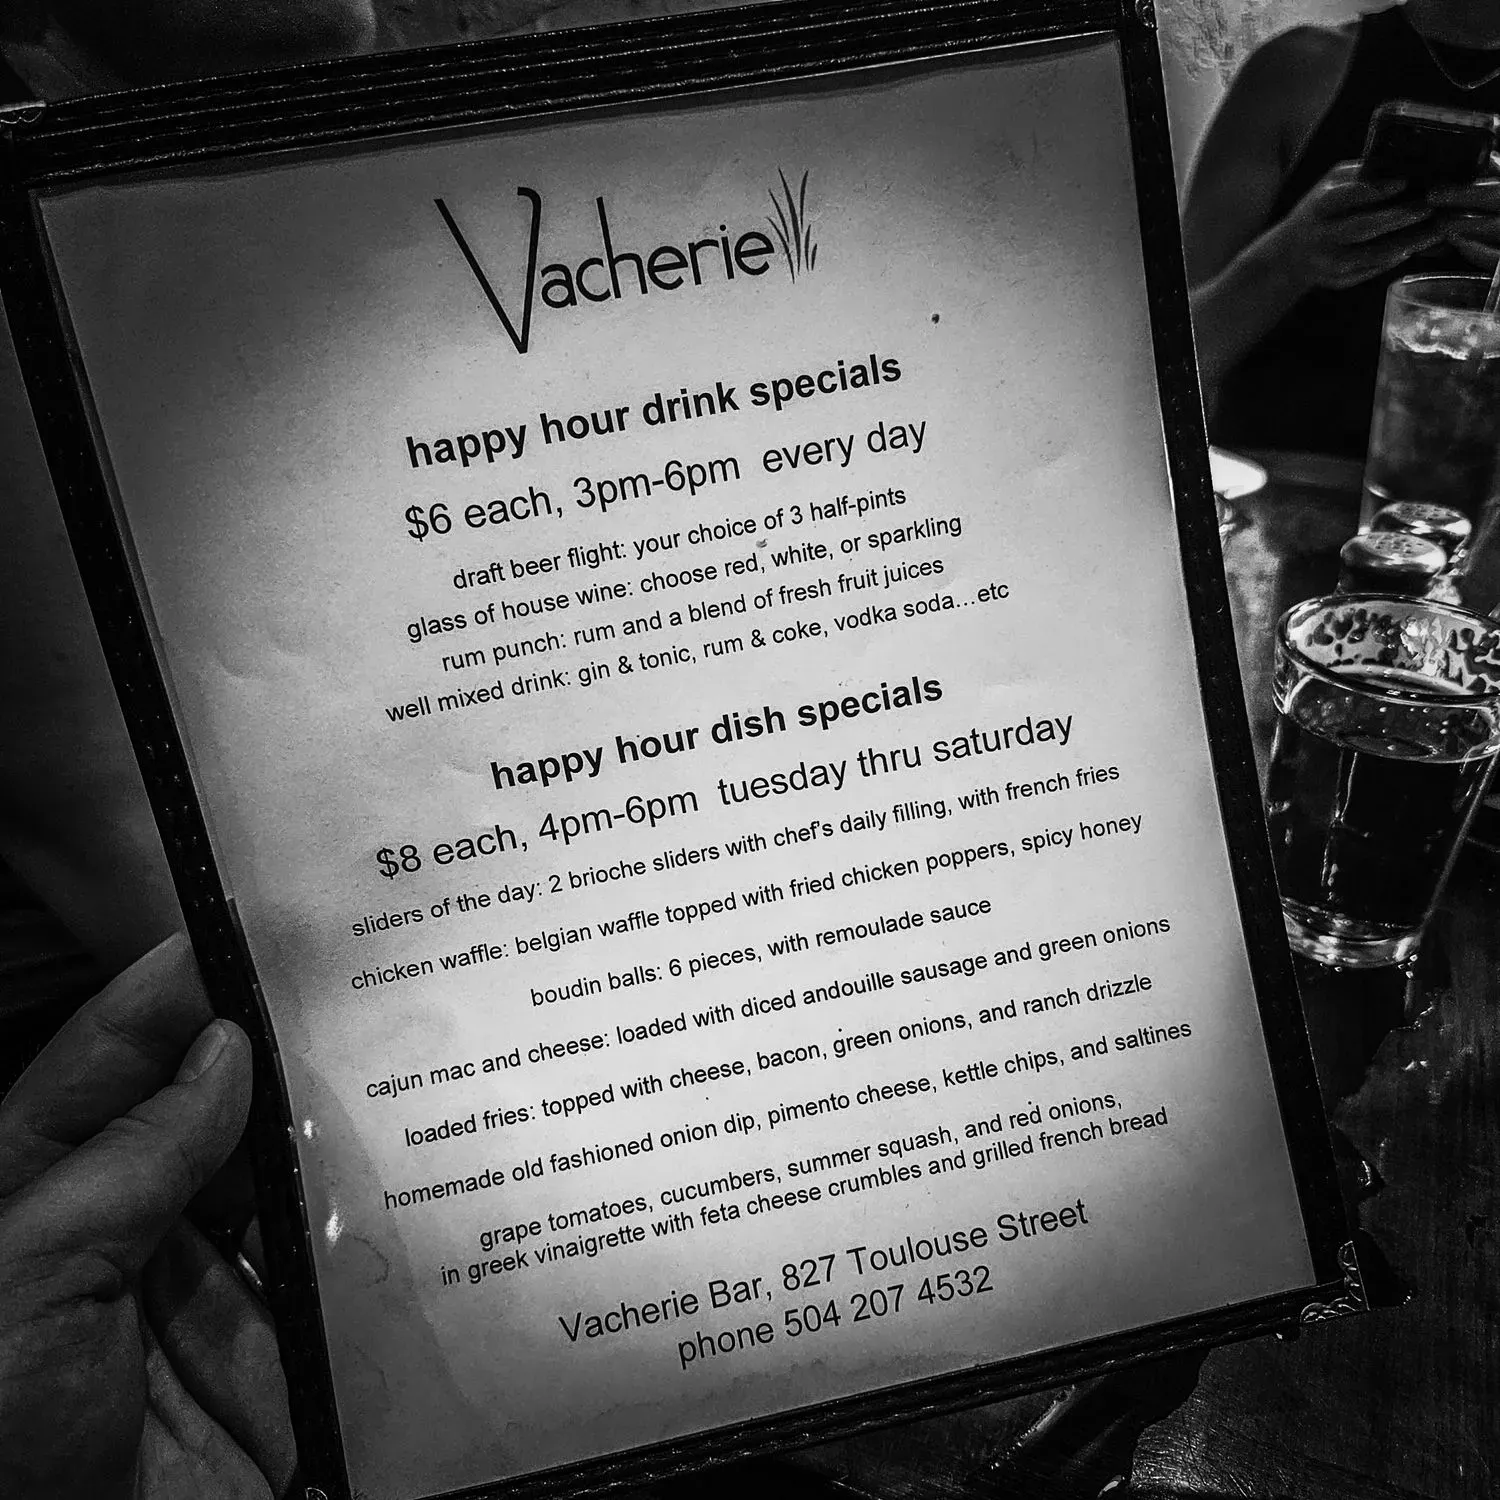 Vacherie
happy hour drink specials
$6 each, 3pm-6pm every day
draft beer flight: your choice of 3 half-pints
glass of house wine: choose red, white, or sparkling
rum punch: rum and a blend of fresh fruit juices
well mixed drink: gin & tonic, rum & coke, vodka soda...etc
happy hour dish specials
$8 each, 4pm-6pm tuesday thru saturday
sliders of the day: 2 brioche sliders with chef's daily filling, with french fries
chicken waffle: belgian waffle topped with fried chicken poppers, spicy honey
boudin balls: 6 pieces, with remoulade sauce
cajun mac and cheese: loaded with diced andouille sausage and green onions
loaded fries: topped with cheese, bacon, green onions, and ranch drizzle
homemade old fashioned onion dip, pimento cheese, kettle chips, and saltines
grape tomatoes, cucumbers, summer squash, and red onions,
in greek vinaigrette with feta cheese crumbles and grilled french bread
Vacherie Bar, 827 Toulouse Street
phone 504 207 4532